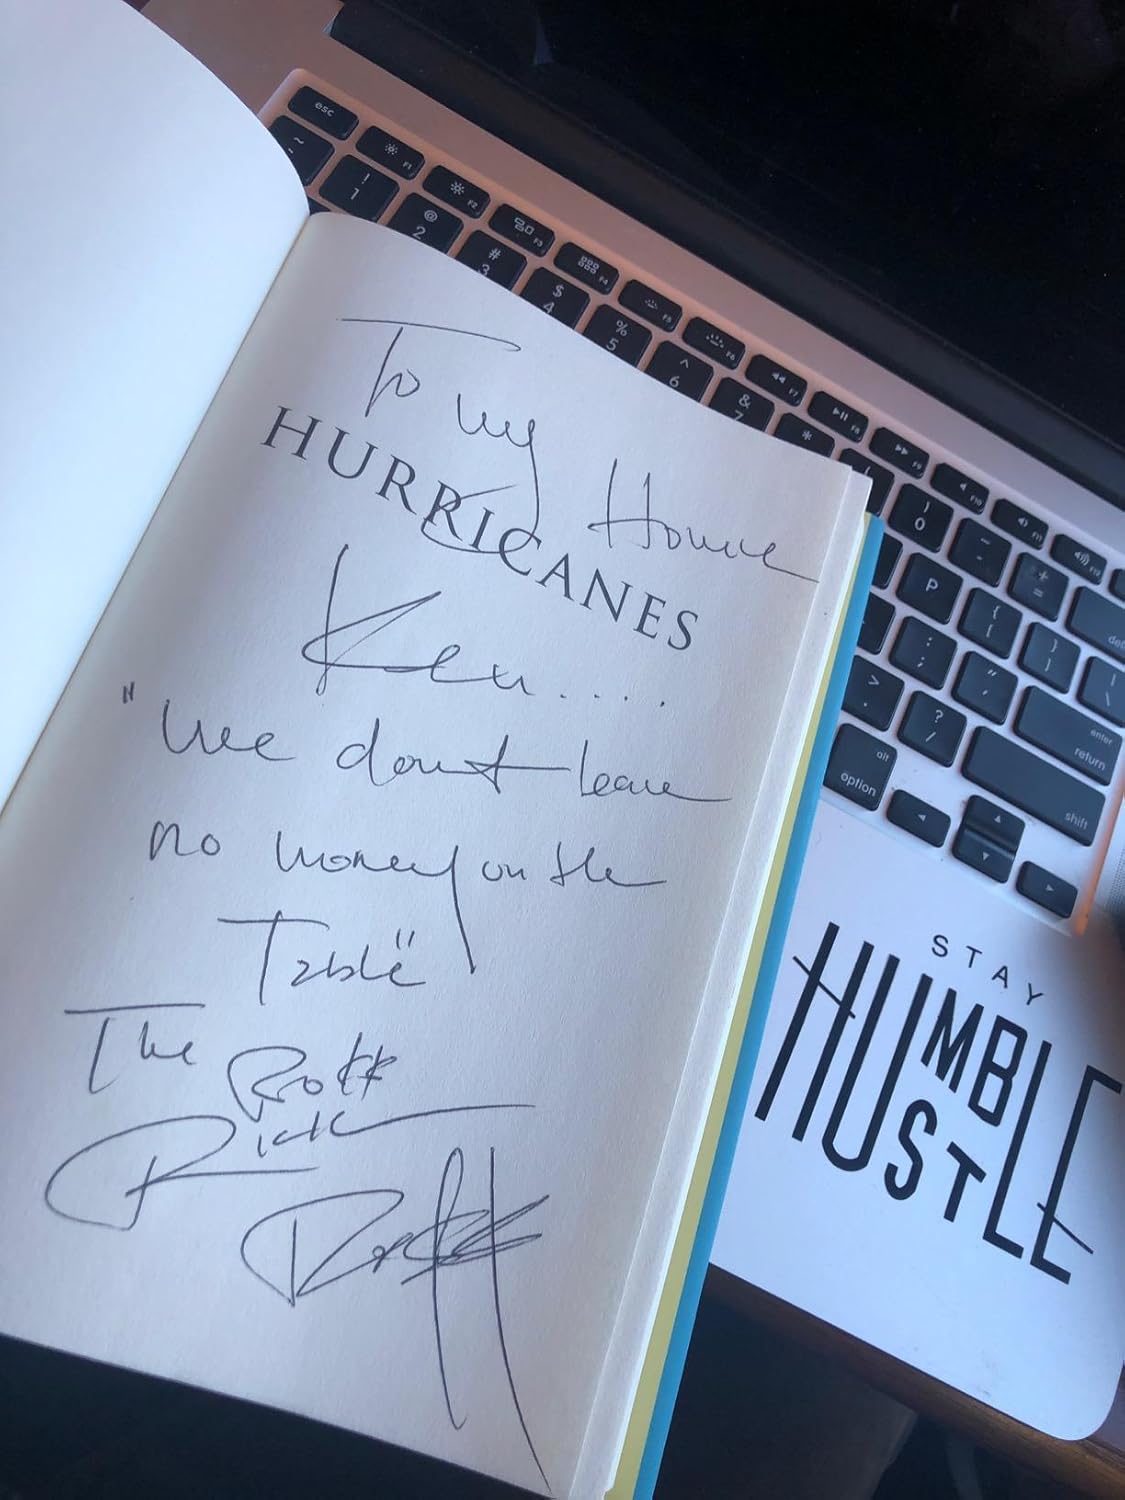 esc
F1
F2
F3
F4
F5
F6
F7
F8
F9
F10
F11
F12
~
!
1
@
2
#
3
$
4
%
5
^
6
&
7
*
)
0
-
+
=
P
{
[
}
]
|
\
:
;
"
>
.
?
/
enter
return
shift
alt
option
To my Homie
HURRICANES
Ken.....
"We don't leave
no money on the
Table"
The
Rick
STAY
HUMBLE
HUSTLE